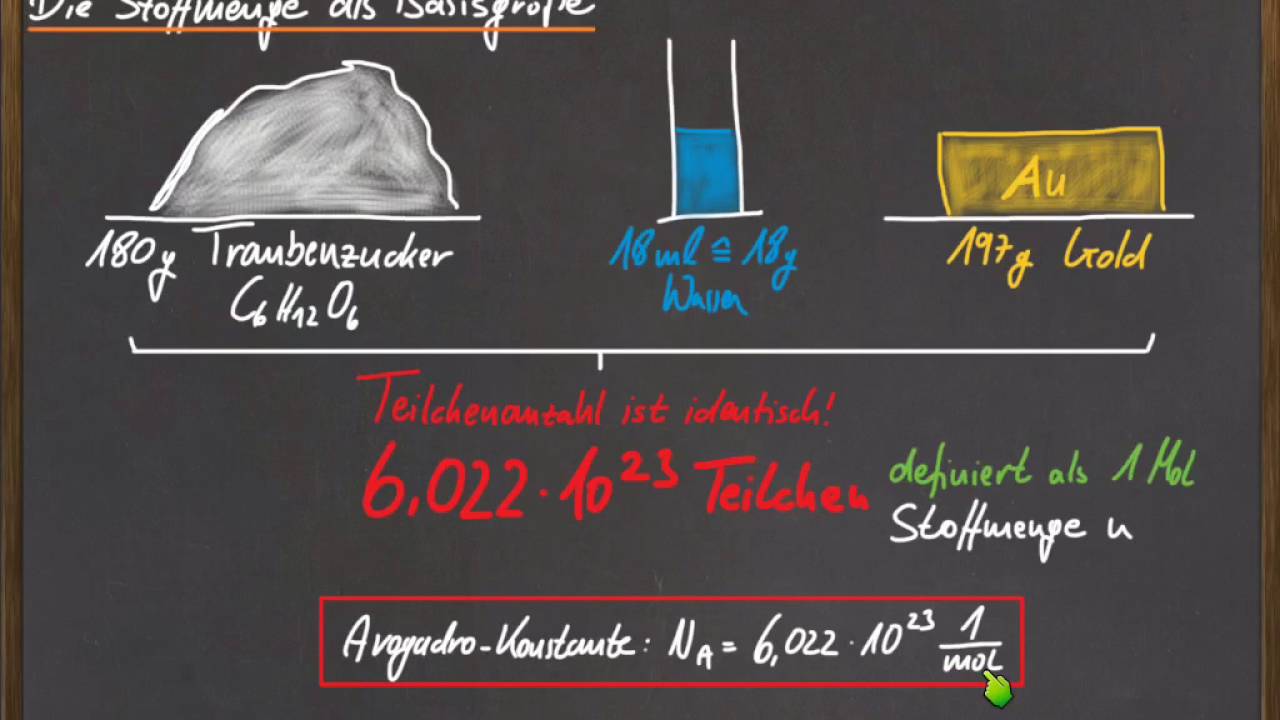 Die Stoffmenge als Basisgröße
Au
180g Traubenzucker
C₆H₁₂O₆
18ml ≙ 18g
Wasser
197g Gold
Teilchenanzahl ist identisch!
6,022 · 10²³ Teilchen
definiert als 1 Mol
Stoffmenge n
Avogadro-Konstante: N_A = 6,022 · 10²³ 1/mol